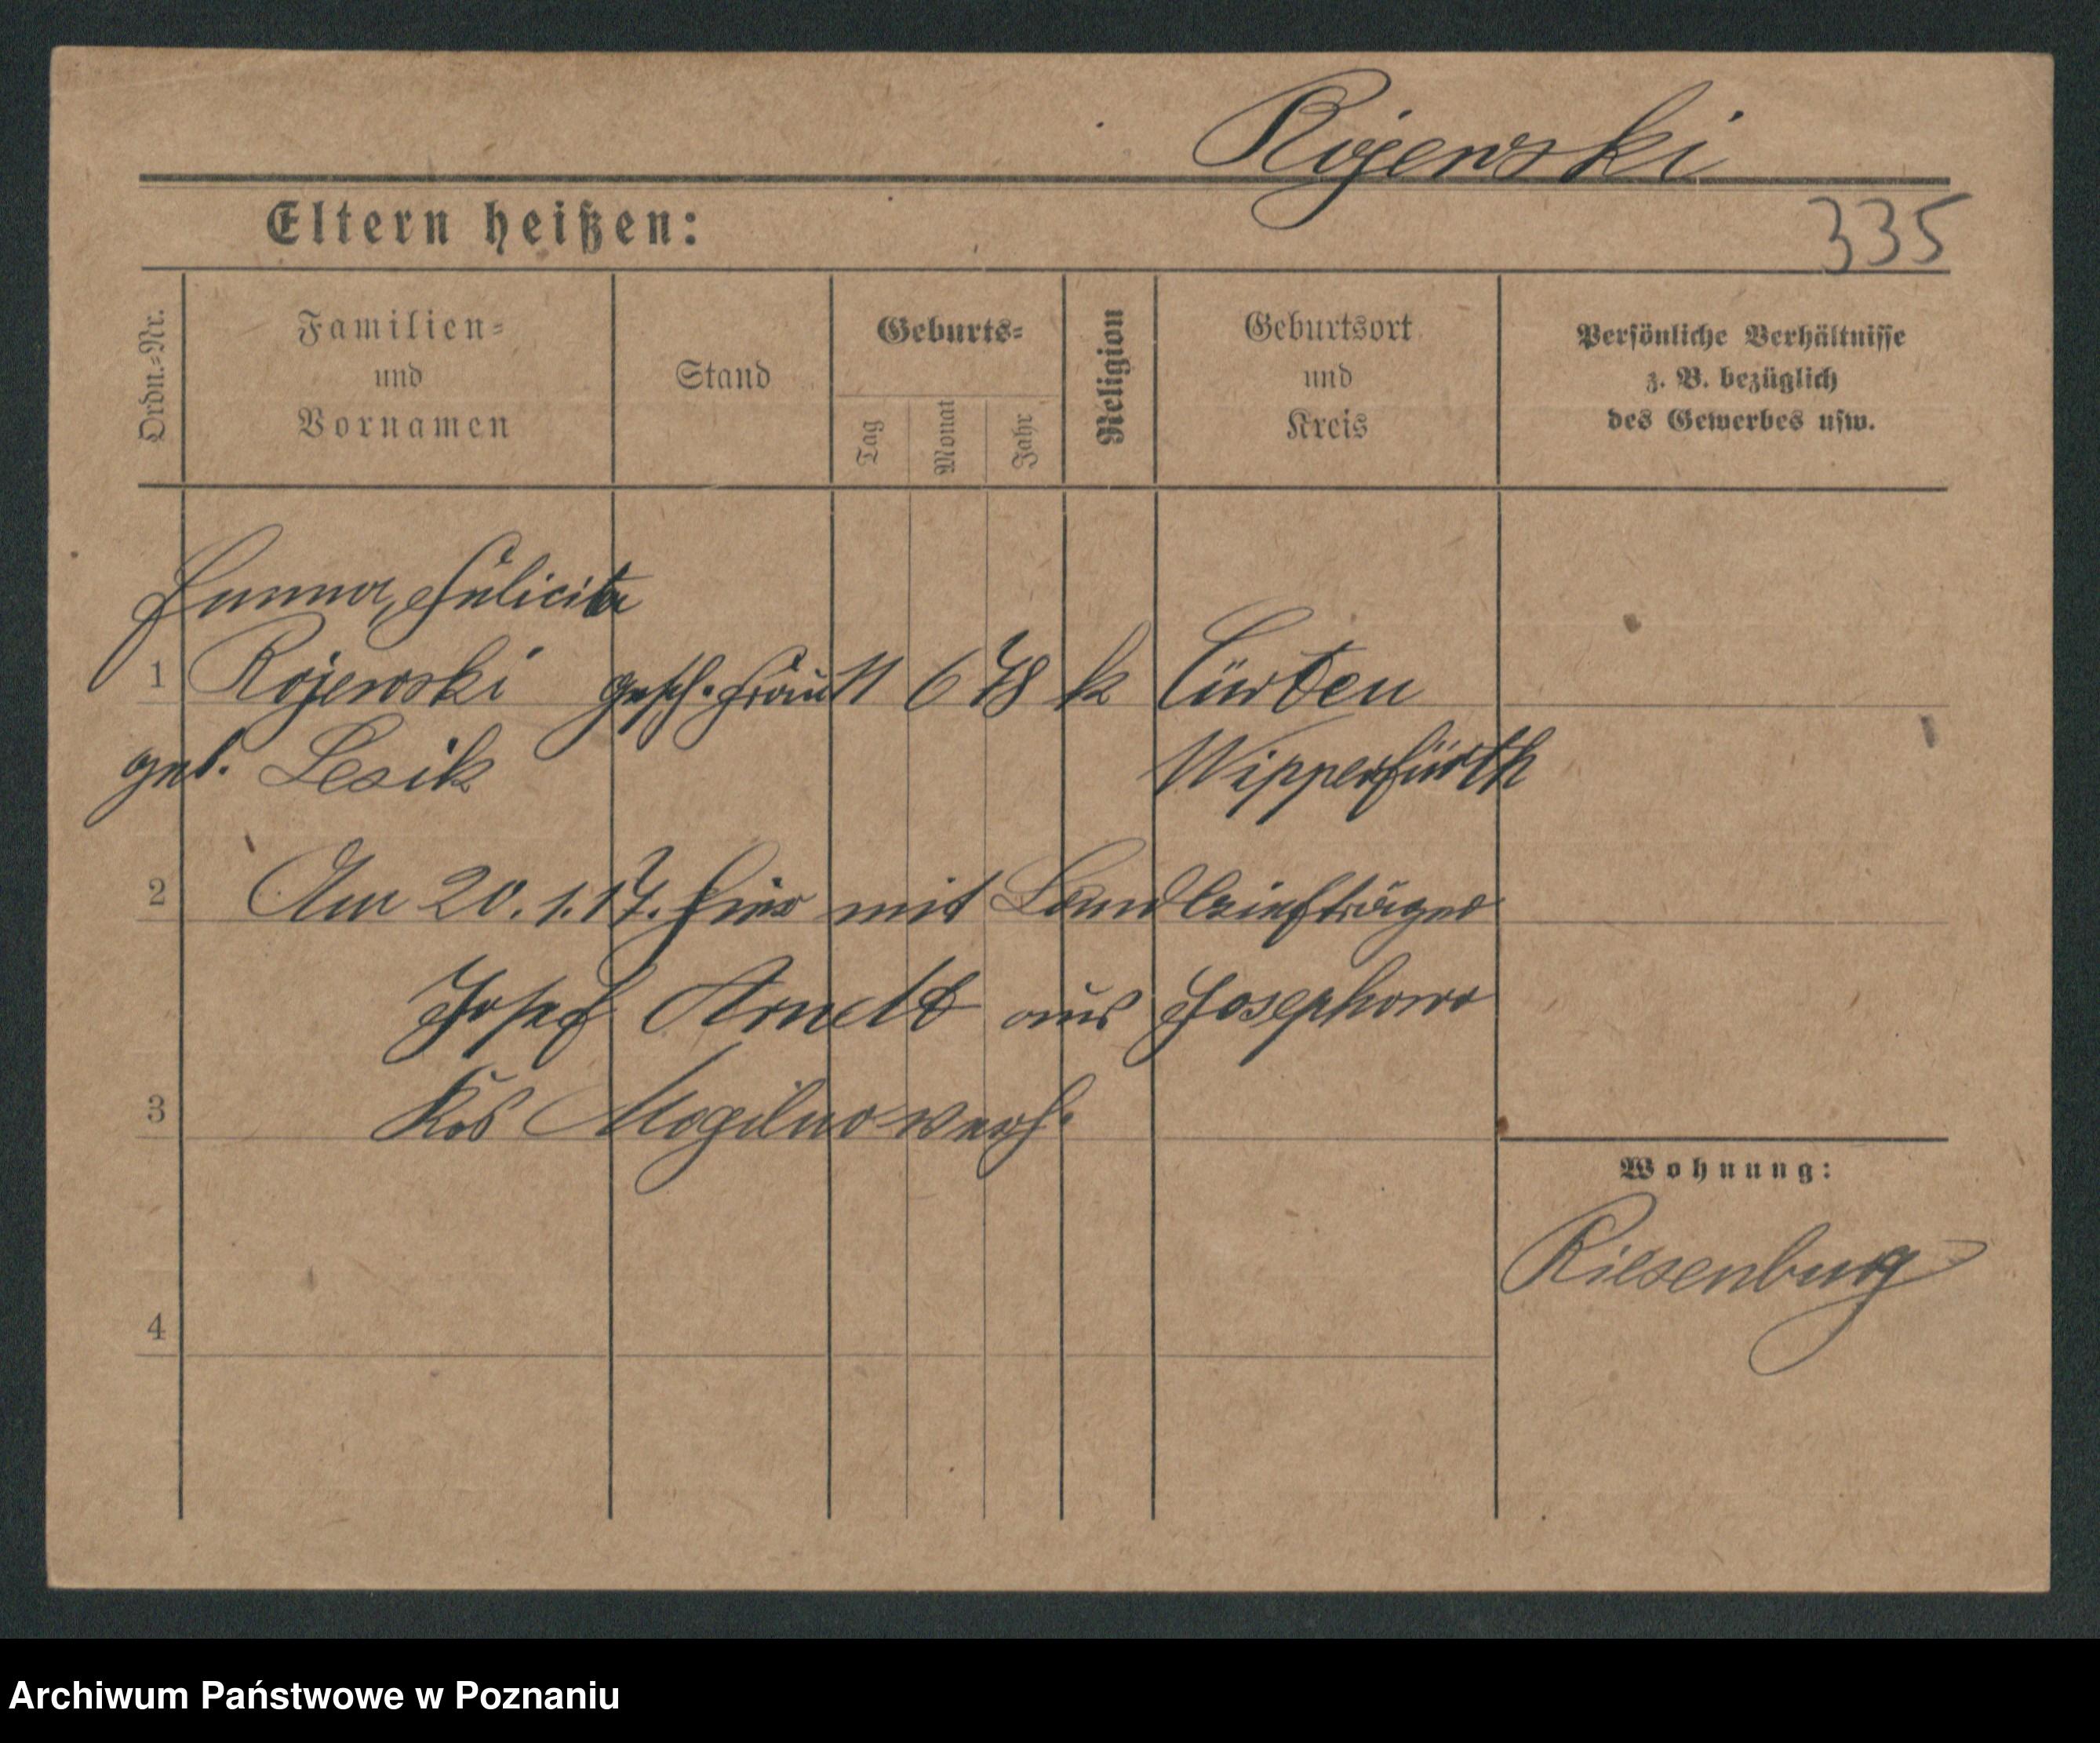 Rojewski
Eltern heißen:
335
Ordn.-Nr.
Familien-
und
Vornamen
Stand
Geburts-
Tag
Monat
Jahr
Religion
Geburtsort
und
Kreis
Persönliche Verhältnisse
z. B. bezüglich
des Gewerbes usw.
Felicita
1 Rojewski gesch. Frau 11 6 78 k Cürten
geb. Lesik Wipperfürth
2 Am 20.1.17. hier mit Landbriefträger
Josef Arndt aus Josephowo
3 Krs Mogilno verh.
Wohnung:
Riesenburg
4
Archiwum Państwowe w Poznaniu